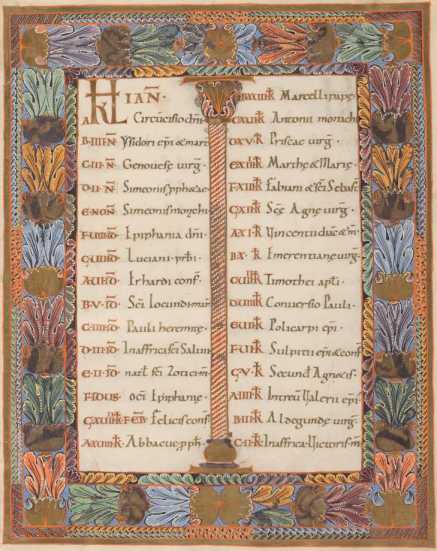 KL IAN̄.
A Circūcisio dn̄i
B·IIII·N̄ Ysidori ep̄i & mart̄
C·III·N̄ Genouefe uirḡ.
D·II·N̄ Simeonis pphetae.
E·NON̄ Simeonis monchi
F·VIII·ID̄ Epiphania dn̄i.
G·VII·ID̄ Luciani p̄rb̄i.
A·VI·ID̄ Erhardi conf̄.
B·V·ID̄ Sc̄i Iocundi mar̄
C·IIII·ID̄ Pauli heremitę.
D·III·ID̄ In affrica sc̄i Salui
E·II·ID̄ nat̄ sc̄i Zotici m̄
F·IDUS oct̄ Epiphanię.
G·XVIIII·K̄ FEB̄ Felicis conf̄.
A·XVIII·K̄ Abbacuc pph̄.
B·XVII·K̄ Marcelli papę.
C·XVI·K̄ Antonii monach
D·XV·K̄ Priscae uirḡ.
E·XIIII·K̄ Marthę & Marię.
F·XIII·K̄ Fabiani & sc̄i Sebast̄
G·XII·K̄ Sc̄e Agne uirḡ.
A·XI·K̄ Vincentii diac̄ & m̄.
B·X·K̄ Emerentiane uirḡ.
C·VIIII·K̄ Timothei apl̄i.
D·VIII·K̄ Conuersio Pauli.
E·VII·K̄ Policarpi ep̄i.
F·VI·K̄ Sulpicii ep̄i & conf̄
G·V·K̄ Secundo Agnetis.
A·IIII·K̄ Valerii ep̄i
B·III·K̄ Aldegundę uirḡ.
C·II·K̄ In affrica Victoris m̄